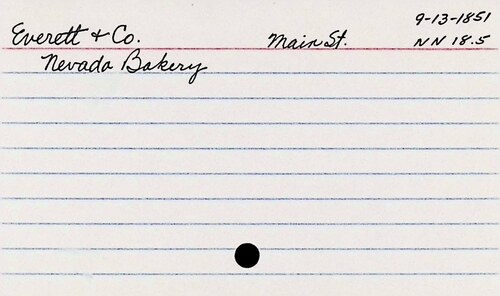 9-13-1851
Everett & Co. Main St. NN 18.5
Nevada Bakery